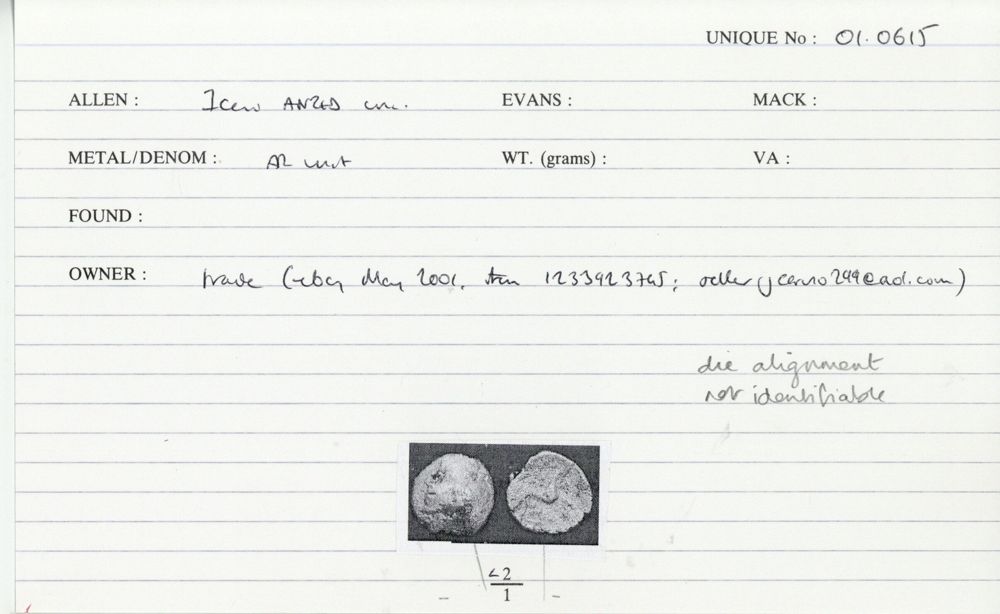 UNIQUE No : 01.0615
ALLEN : Iceni ANTED unc. EVANS : MACK :
METAL/DENOM : AR unit WT. (grams) : VA :
FOUND :
OWNER : trade (ebay May 2001, item 1233923745; seller
die alignment
not identifiable
<2
1